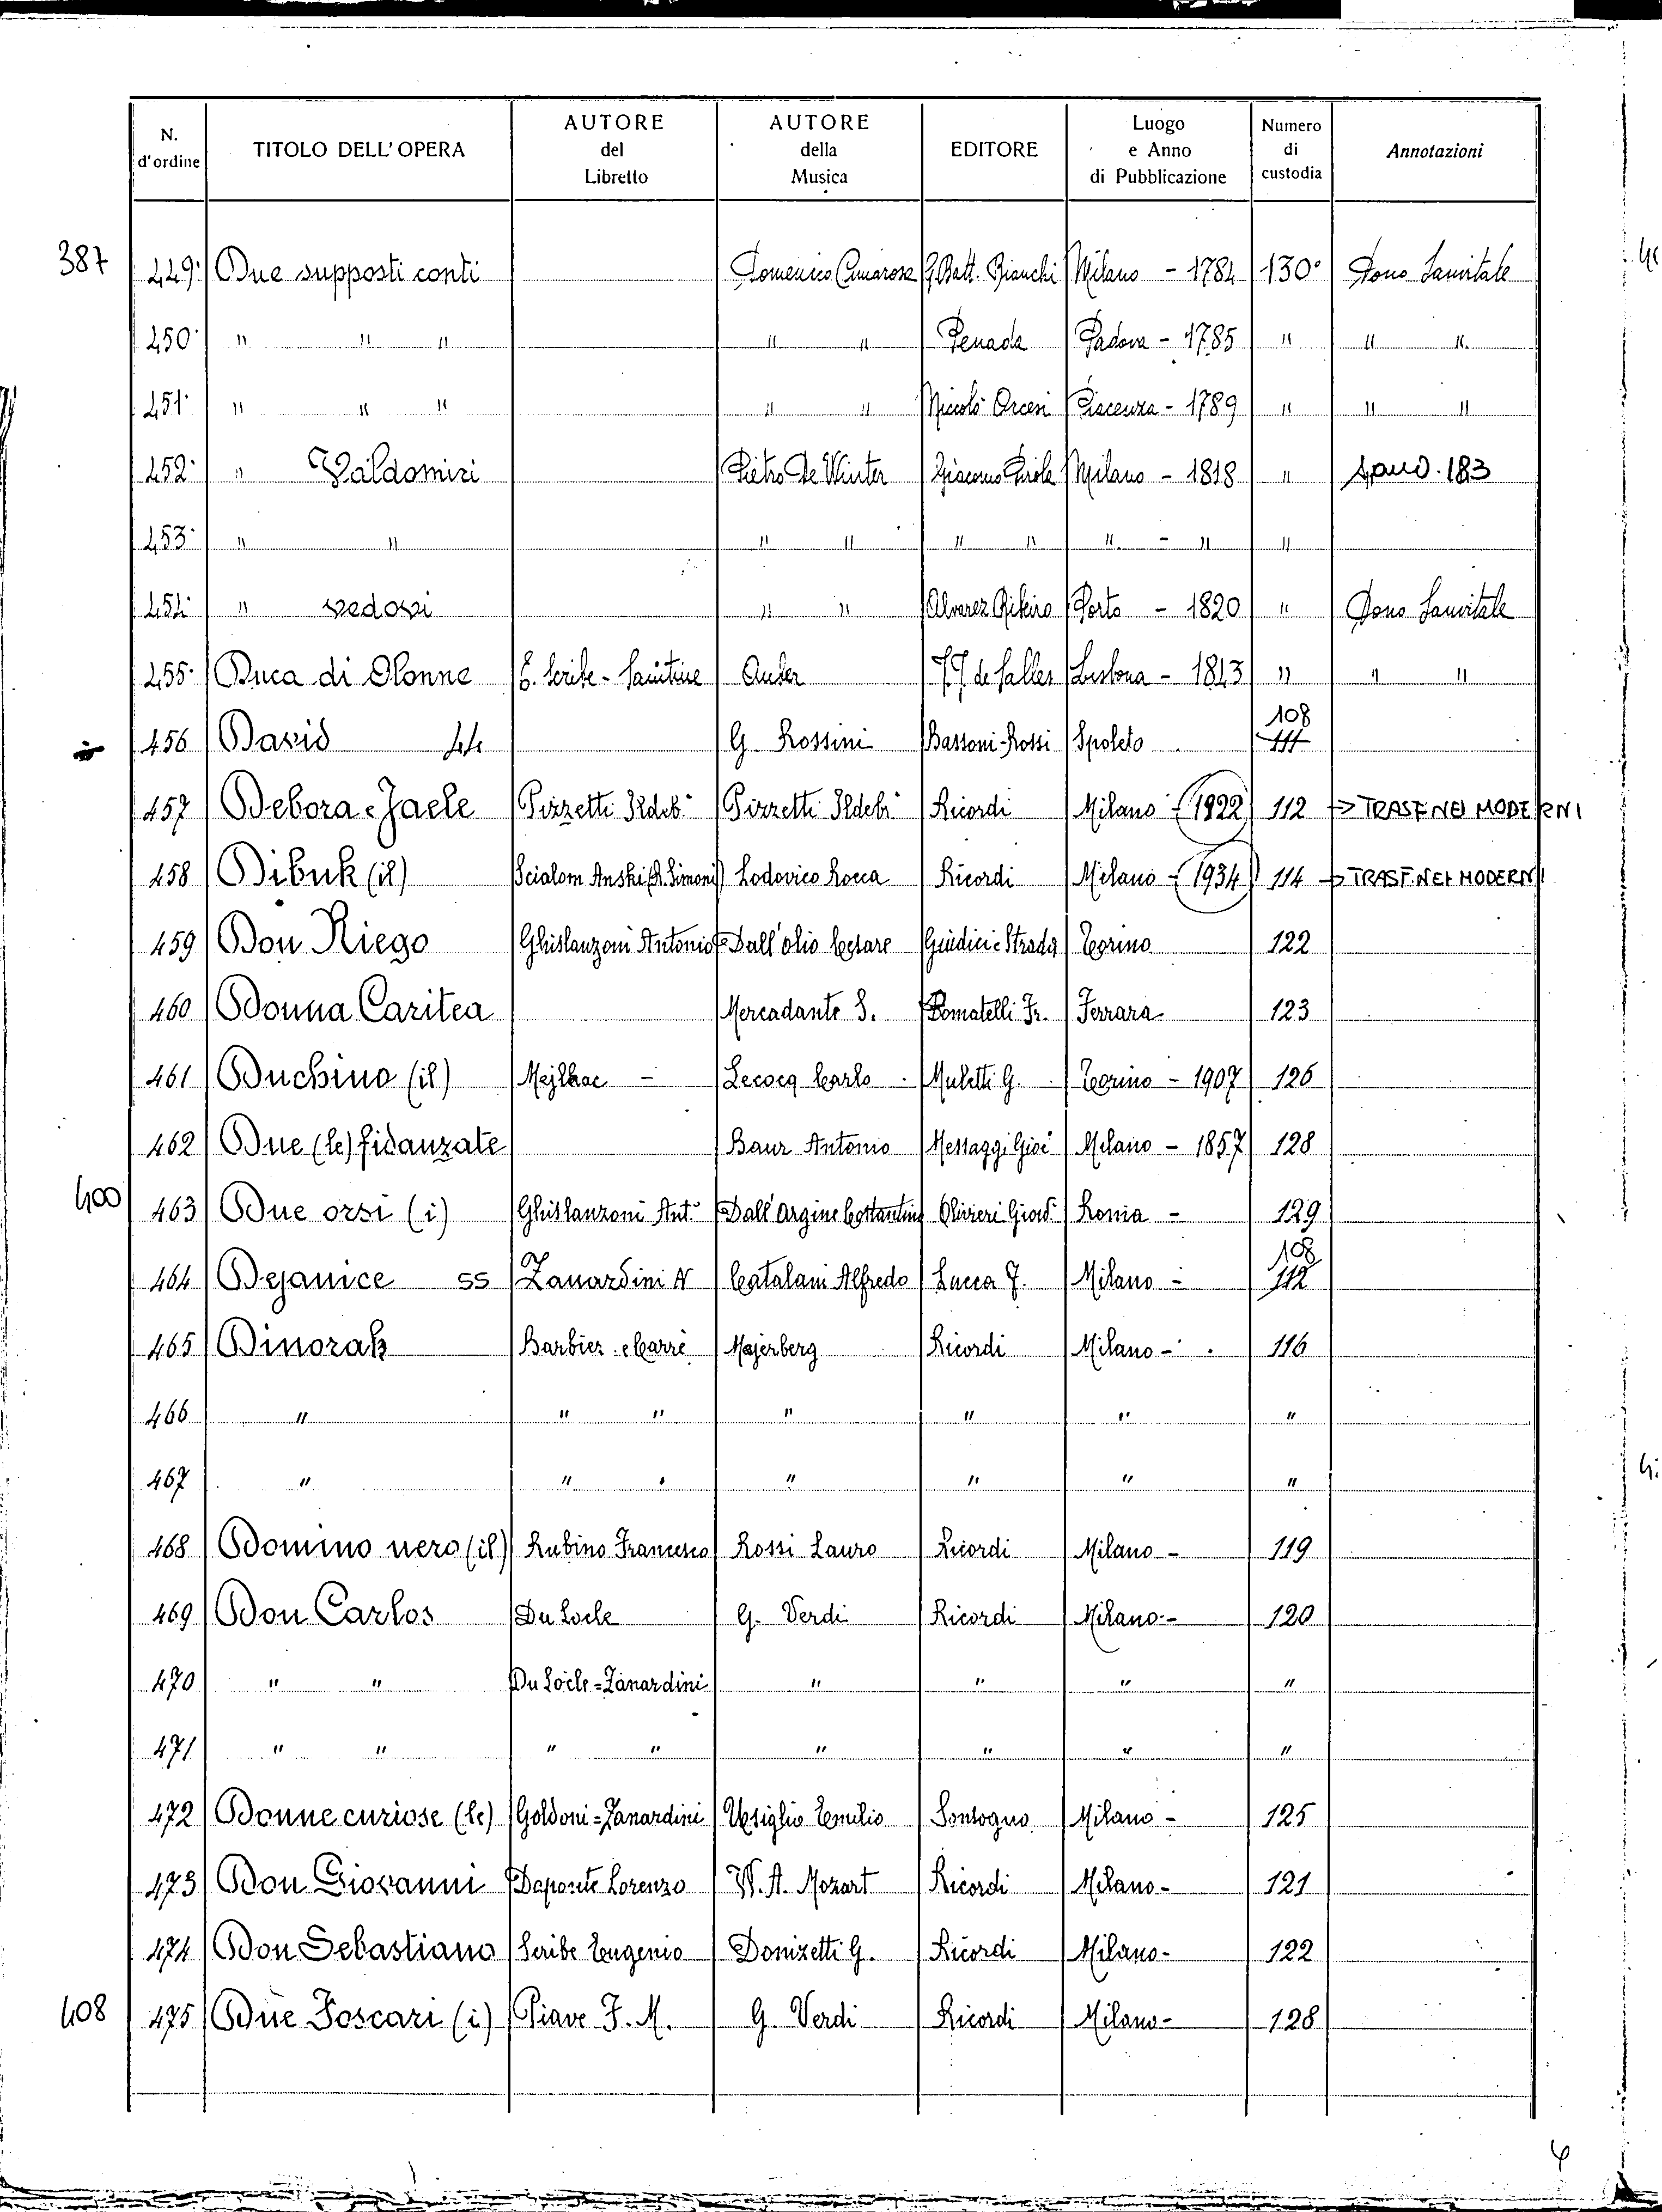 N. d'ordine TITOLO DELL'OPERA AUTORE del Libretto AUTORE della Musica EDITORE Luogo e Anno di Pubblicazione Numero di custodia Annotazioni
387 449 Due supposti conti Domenico Cimarosa G. Batt. Bianchi Milano - 1784 130 Dono Sanvitale
450 " " " " " Penada Padova - 1785 " " "
451 " " " " " Niccolò Orcesi Piacenza - 1789 " " "
452 " Valdomiri Pietro De Winter Giacomo Pirola Milano - 1818 " 183
453 " " " " " " " - " "
454 " vedovi " " Alvarez Ribeiro Porto - 1820 " Dono Sanvitale
455 Duca di Olonne E. Scribe - Saintine Auber de Salles Lisbona - 1843 " " "
456 David G. Rossini Bassoni-Rossi Spoleto 108 111
457 Debora e Jaele Pizzetti Ildeb° Pizzetti Ildeb° Ricordi Milano - (1922) 112 → TRASF. NEI MODERNI
458 Dibuk (il) Scialom Anski (R. Simoni) Lodovico Rocca Ricordi Milano - (1934) 114 → TRASF. NEI MODERNI
459 Don Riego Ghislanzoni Antonio Dall'Olio Cesare Giudici e Strada Torino 122
460 Donna Caritea Mercadante S. Pomatelli Fr. Ferrara 123
461 Duchino (il) Mejlhac - Lecocq Carlo Muletti G. Torino - 1907 126
462 Due (le) fidanzate Baur Antonio Messaggi Giov° Milano - 1857 128
400 463 Due orsi (i) Ghislanzoni Ant. Dall'Argine Costantino Olivieri Giov° Roma - 129
464 Dejanice SS Zanardini A Catalani Alfredo Lucca F. Milano - 108 112
465 Dinorah Barbier e Carrè Majerberg Ricordi Milano - 116
466 " " " " " " "
467 " " " " " " "
468 Domino nero (il) Rubino Francesco Rossi Lauro Ricordi Milano - 119
469 Don Carlos Du Locle G. Verdi Ricordi Milano - 120
470 " " Du Locle = Zanardini " " " "
471 " " " " " " " "
472 Donne curiose (le) Goldoni = Zanardini Usiglio Emilio Sonzogno Milano - 125
473 Don Giovanni Daponte Lorenzo W. A. Mozart Ricordi Milano - 121
474 Don Sebastiano Scribe Eugenio Donizetti G. Ricordi Milano - 122
408 475 Due Foscari (i) Piave F. M. G. Verdi Ricordi Milano - 128